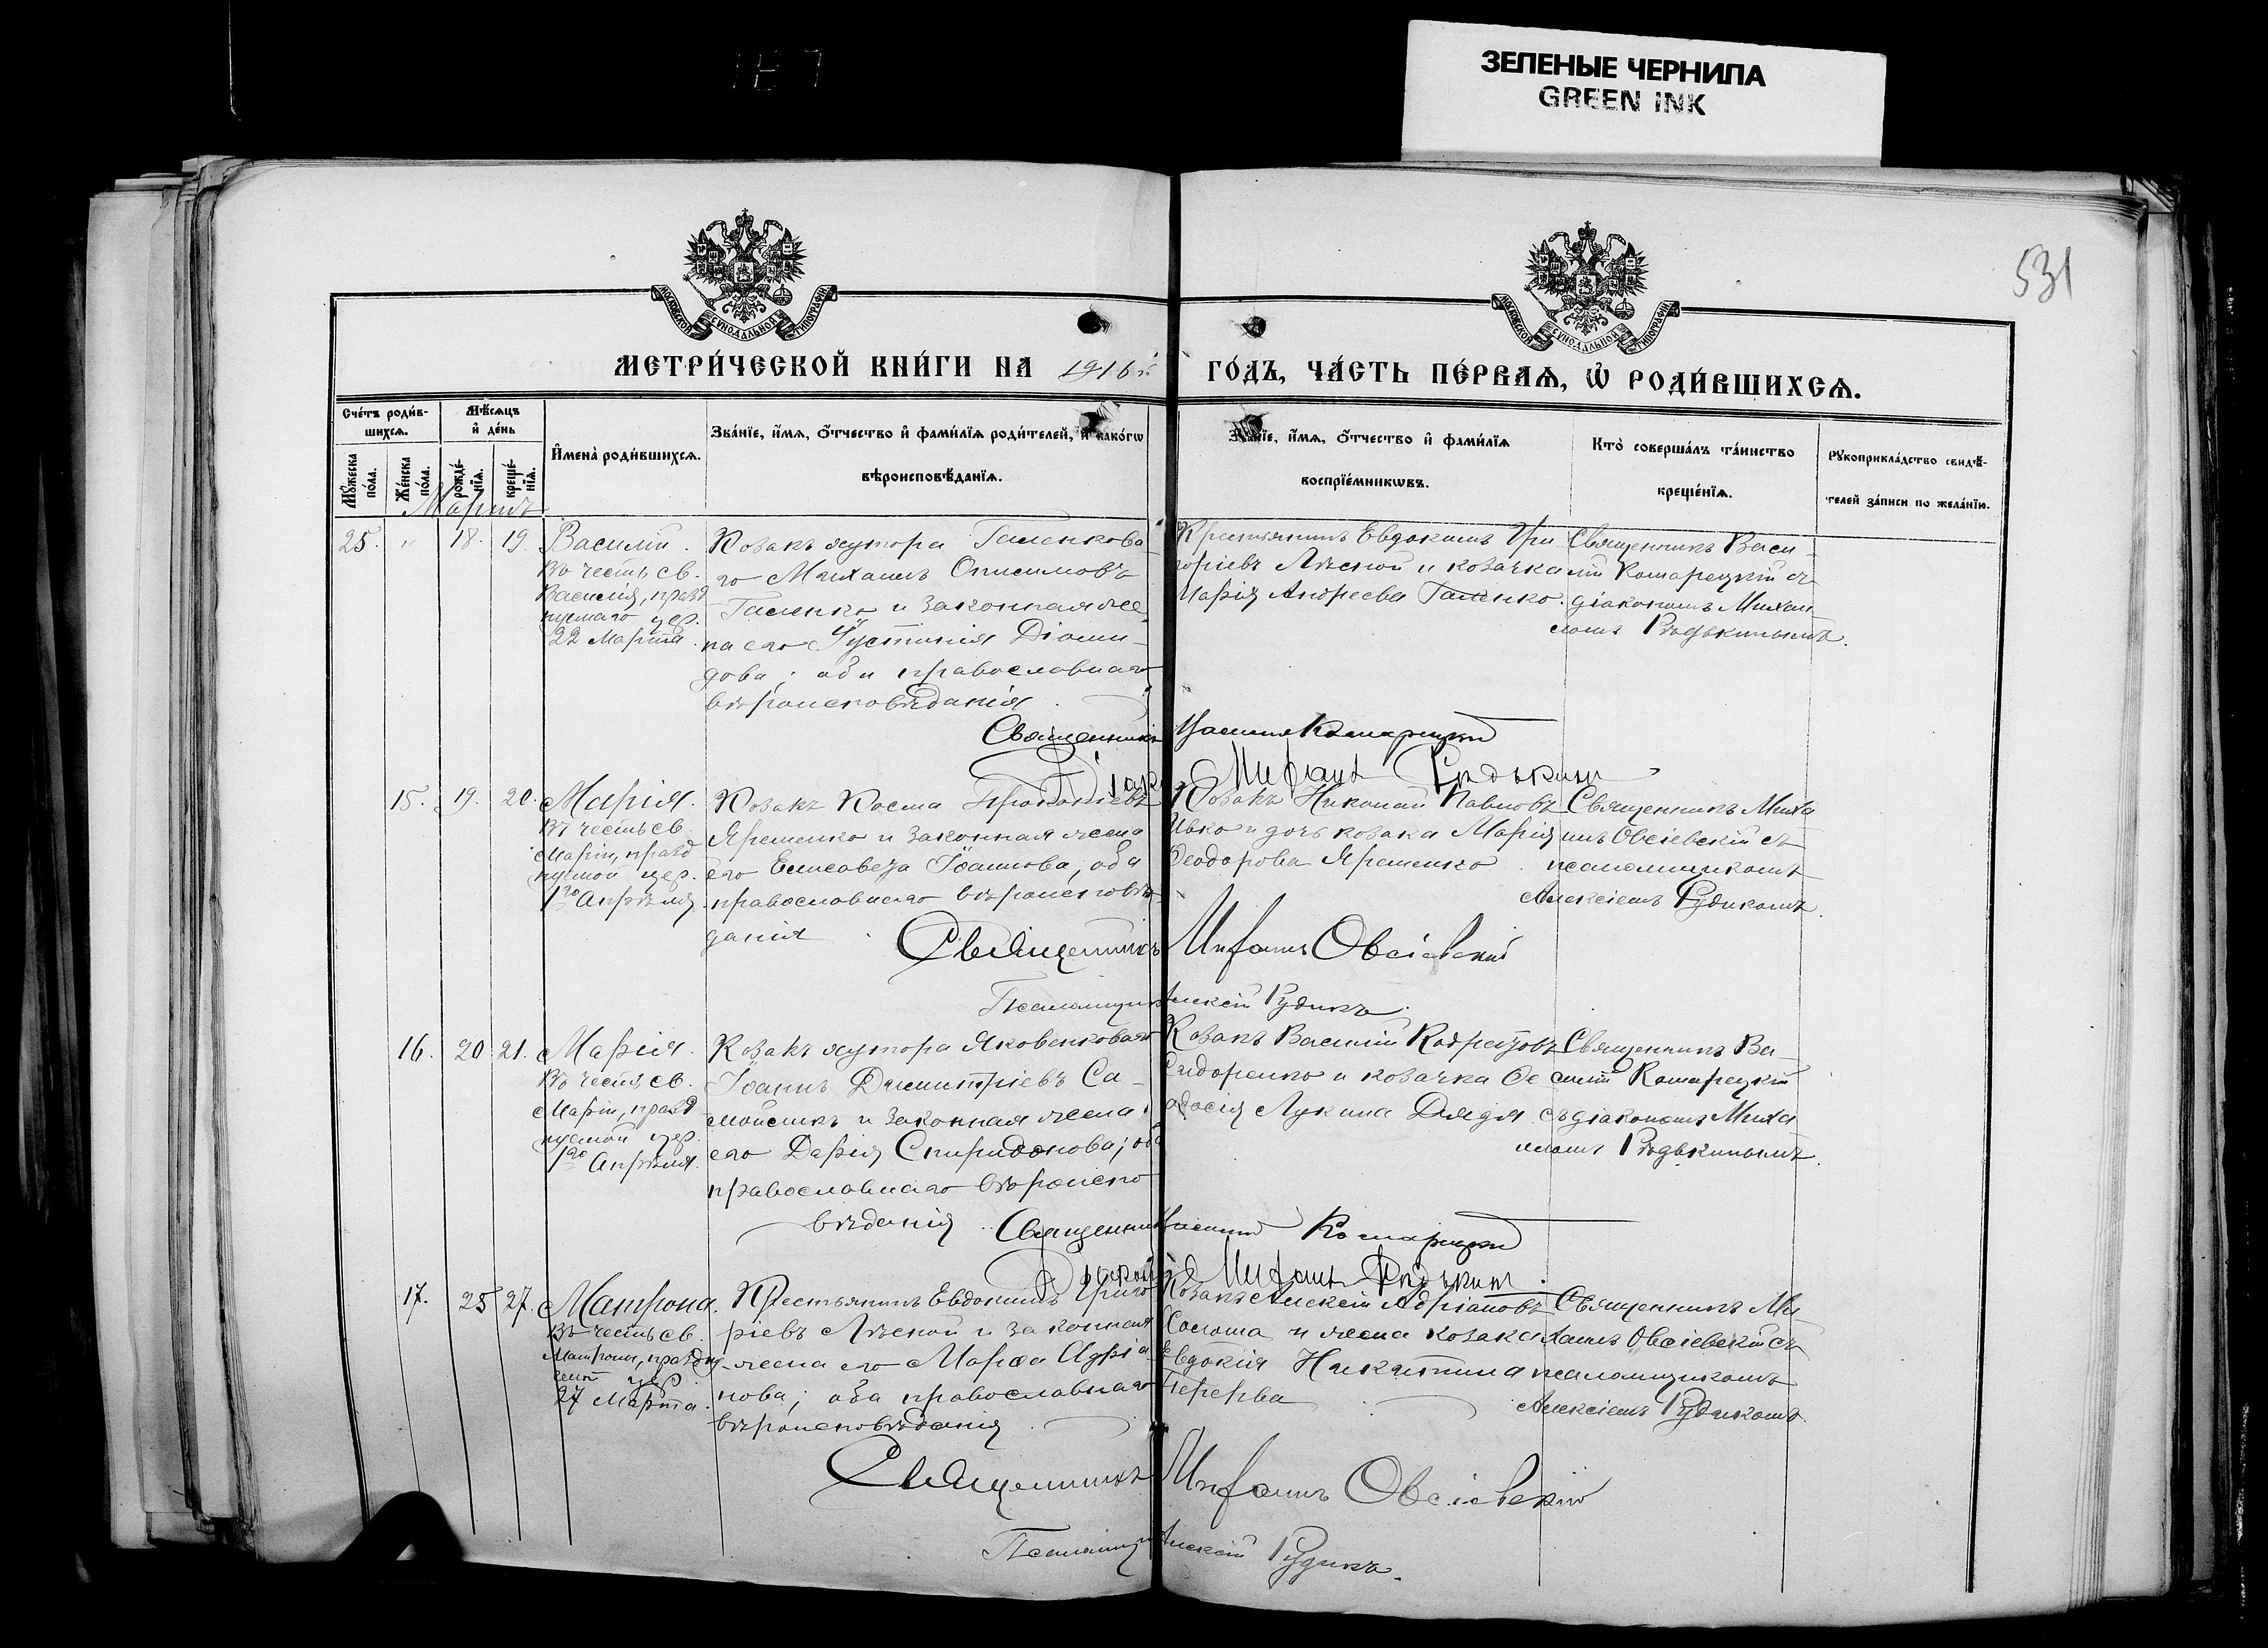 ЗЕЛЕНЫЕ ЧЕРНИЛА
GREEN INK
531
МОСКОВСКОЙ СѴНОДАЛЬНОЙ ТИПОГРАФІИ
МОСКОВСКОЙ СѴНОДАЛЬНОЙ ТИПОГРАФІИ
МЕТРИ́ЧЕСКОЙ КНИ́ГИ НА 1916й ГО́ДЪ, ЧА́СТЬ ПЕ́РВАѦ, Ѡ҆ РОДИ́ВШИХСѦ.
Сче́тъ роди́вшихсѧ.
Мѣ́сѧцъ и҆ де́нь
Мꙋ́жеска по́ла.
Же́нска по́ла.
рожде́нїѧ.
креще́нїѧ.
И҆мена̀ роди́вшихсѧ.
Зва́нїе, и҆́мѧ, ѻ҆́тчество и҆ фами́лїѧ роди́телей, и҆ како́гѡ
вѣроисповѣ́данїѧ.
Зва́нїе, и҆́мѧ, ѻ҆́тчество и҆ фами́лїѧ
воспрїе́мникѡвъ.
Кто̀ соверша́лъ та́инство
креще́нїѧ.
Рꙋкоприкла́дство свидѣ́-
телей за́писи по жела́нїю.
Мартъ
25. " 18. 19. Василій.
Въ честь св.
Василія, празд
нуемаго цер.
22 Марта.
Козакъ хутора Галенкова
го Михаилъ Онисимовъ
Галенко и законная же
на его Іустинія Діоми-
дова; оба православнаго
вѣроисповѣданія.
Крестьянинъ Евдокимъ Гри
горіевъ Лѣсной и козачка
Марія Андреева Галенко.
Священникъ Васи-
лій Комарецкій съ
діакономъ Михаи
ломъ Рѣдькинымъ.
Священникъ Василій Комарецкій
Діаконъ Михаилъ Рѣдькинъ
15. 19. 20. Марія.
Въ честь св.
Маріи, празд
нуемой цер.
1го Апрѣля.
Козакъ Косма Прокопіевъ
Яременко и законная жена
его Елисавета Іоаннова, оба
православнаго вѣроисповѣ
данія.
Козакъ Николай Павловъ
Ивко и дочь козака Марія
Ѳеодорова Яременко.
Священникъ Миха
илъ Овсіевскій съ
псаломщикомъ
Алексіемъ Рудикомъ.
Священникъ Михаилъ Овсіевскій
Псаломщикъ Алексій Рудикъ.
16. 20. 21. Марія.
Въ честь св.
Маріи, празд
нуемой цер.
1го Апрѣля.
Козакъ хутора Яковенковаго
Іоаннъ Димитріевъ Са-
мойликъ и законная жена
его Дарія Спиридонова; оба
православнаго вѣроиспо
вѣданія.
Козакъ Василій Кодратовъ
Сидоренко и козачка Ѳе
одосія Лукина Дядя.
Священникъ Ва-
силій Комарецкій
съ діакономъ Миха
иломъ Рѣдькинымъ.
Священникъ Василій Комарецкій
Діаконъ Михаилъ Рѣдькинъ.
17. 25 27. Матрона.
Въ честь св.
Матроны, праздну
емой цер.
27 Марта.
Крестьянинъ Евдокимъ Григо
ріевъ Лѣсной и законная
жена его Марѳа Адріа
нова; оба православнаго
вѣроисповѣданія.
Козакъ Алексій Адріановъ
и жена козака
Евдокія Никитина
Перерва
Священникъ Ми
хаилъ Овсіевскій съ
псаломщикомъ
Алексіемъ Рудикомъ.
Священникъ Михаилъ Овсіевскій
Псаломщикъ Алексій Рудикъ.